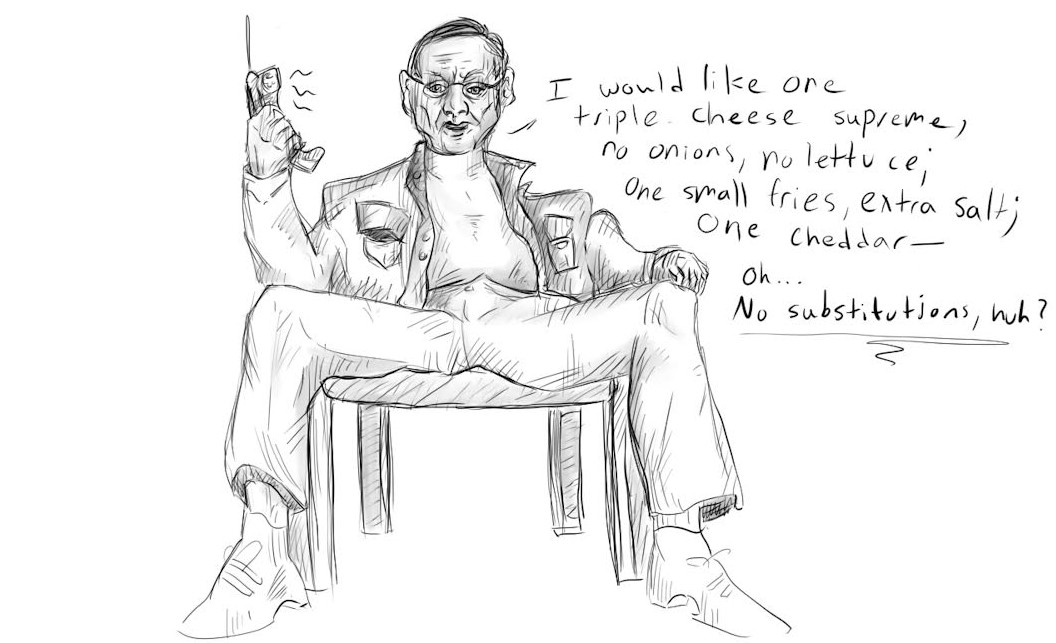 I would like one
triple cheese supreme,
no onions, no lettuce;
One small fries, extra salt;
One cheddar—
oh...
No substitutions, huh?